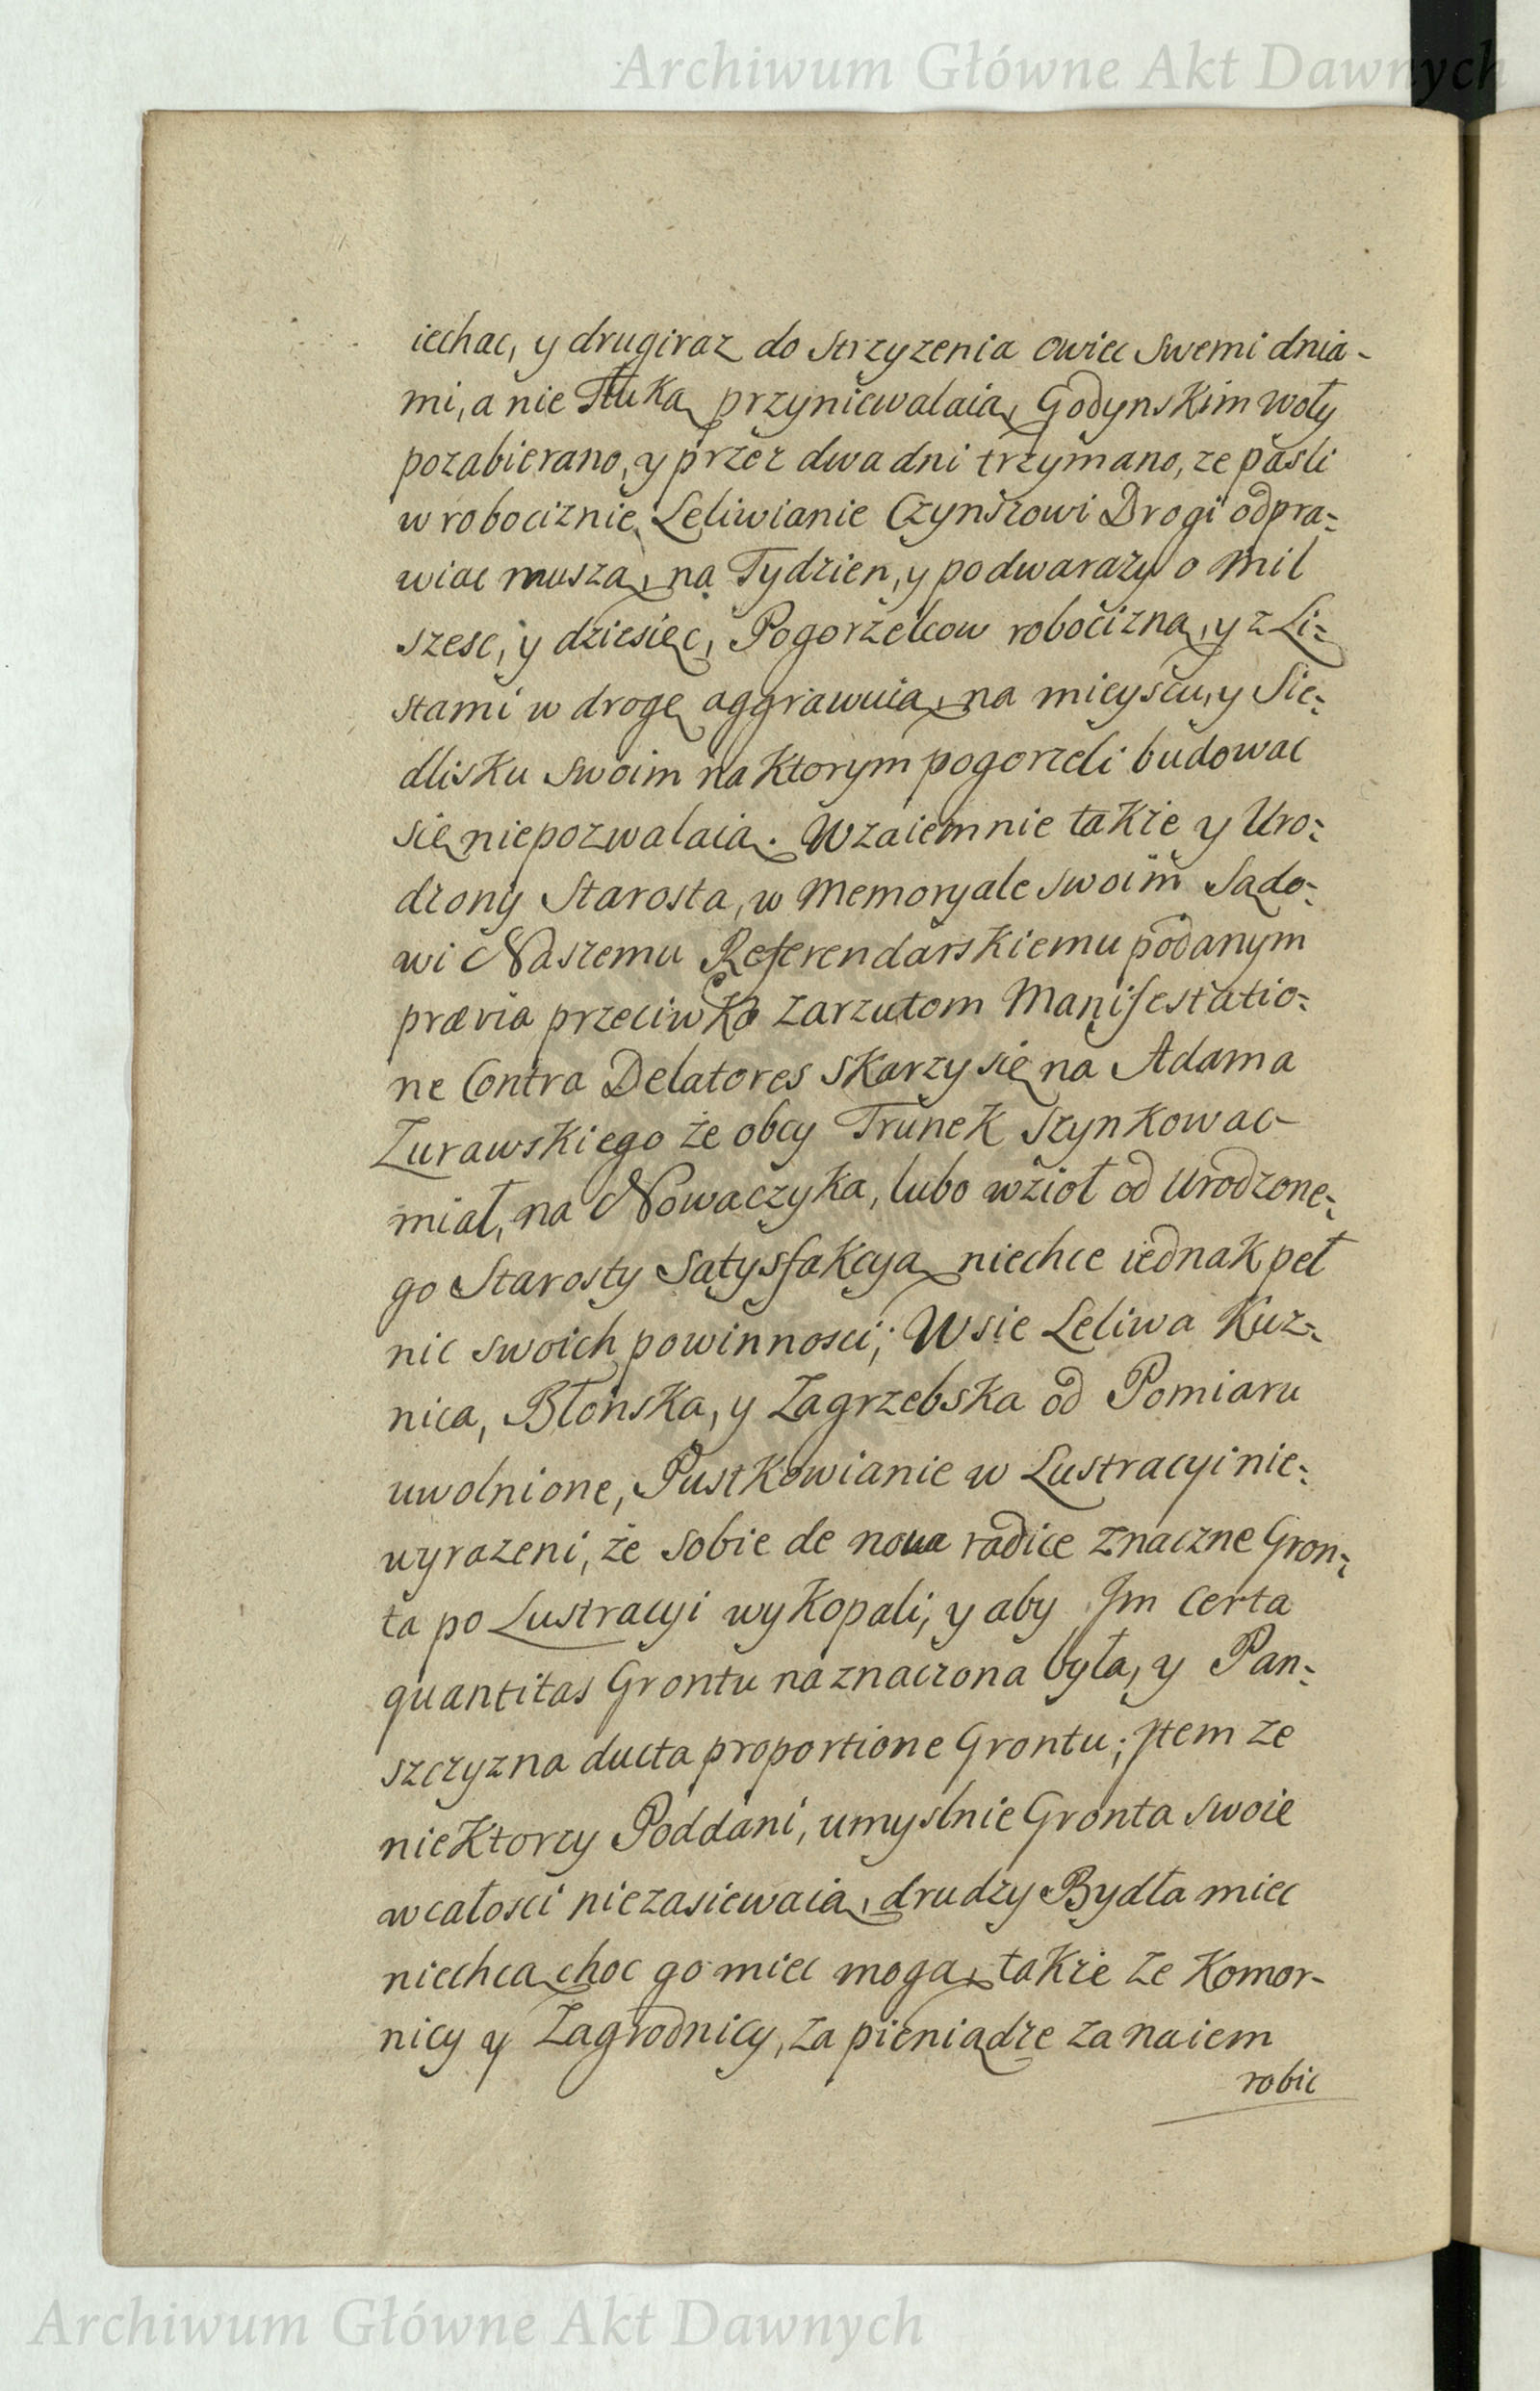 Archiwum Główne Akt Dawnych
iechac, y drugi raz do strzyzenia owiec swemi dnia-
mi, a nie Tłuką przyniewalaią, Godynskim woły
pozabierano, y przez dwa dni trzymano, ze pasli
w robociznie, Leliwianie Czynszowi Drogi odpra=
wiac muszą, na Tydzien, y po dwa razy o mil
szesc, y dziesięc, Pogorzelcow robocizną, y z Li=
stami w drogę aggrawuią, na mieyscu, y Sie=
dlisku swoim na ktorym pogorzeli budowac
się niepozwalaią. Wzaiemnie takze y Uro=
dzony Starosta, w Memoryale swoim Sądo=
wi Naszemu Referendarskiemu podanym
prævia przeciwko zarzutom Manifestatio=
ne Contra Delatores skarzy się na Adama
Zurawskiego że obcy Trunek szynkowac
miał, na Nowaczyka, lubo wzioł od Urodzone=
go Starosty Satysfakcyą niechce iednak peł
nic swoich powinnosci; Wsie Leliwa Kuz=
nica, Błonska, y Zagrzebska od Pomiaru
uwolnione, Pustkowianie w Lustracyi nie=
wyrazeni, że sobie de nova radice znaczne Gron=
ta po Lustracyi wykopali, y aby Im certa
quantitas Grontu naznaczona była, y Pan=
szczyzna ducta proportione Grontu; Item ze
niektorzy Poddani, umyslnie Gronta swoie
w całosci niezasiewaią, drudzy Bydła miec
niechcą choc go miec mogą, takze ze Komor-
nicy y Zagrodnicy, za pieniądze za naiem
robic
Archiwum Główne Akt Dawnych